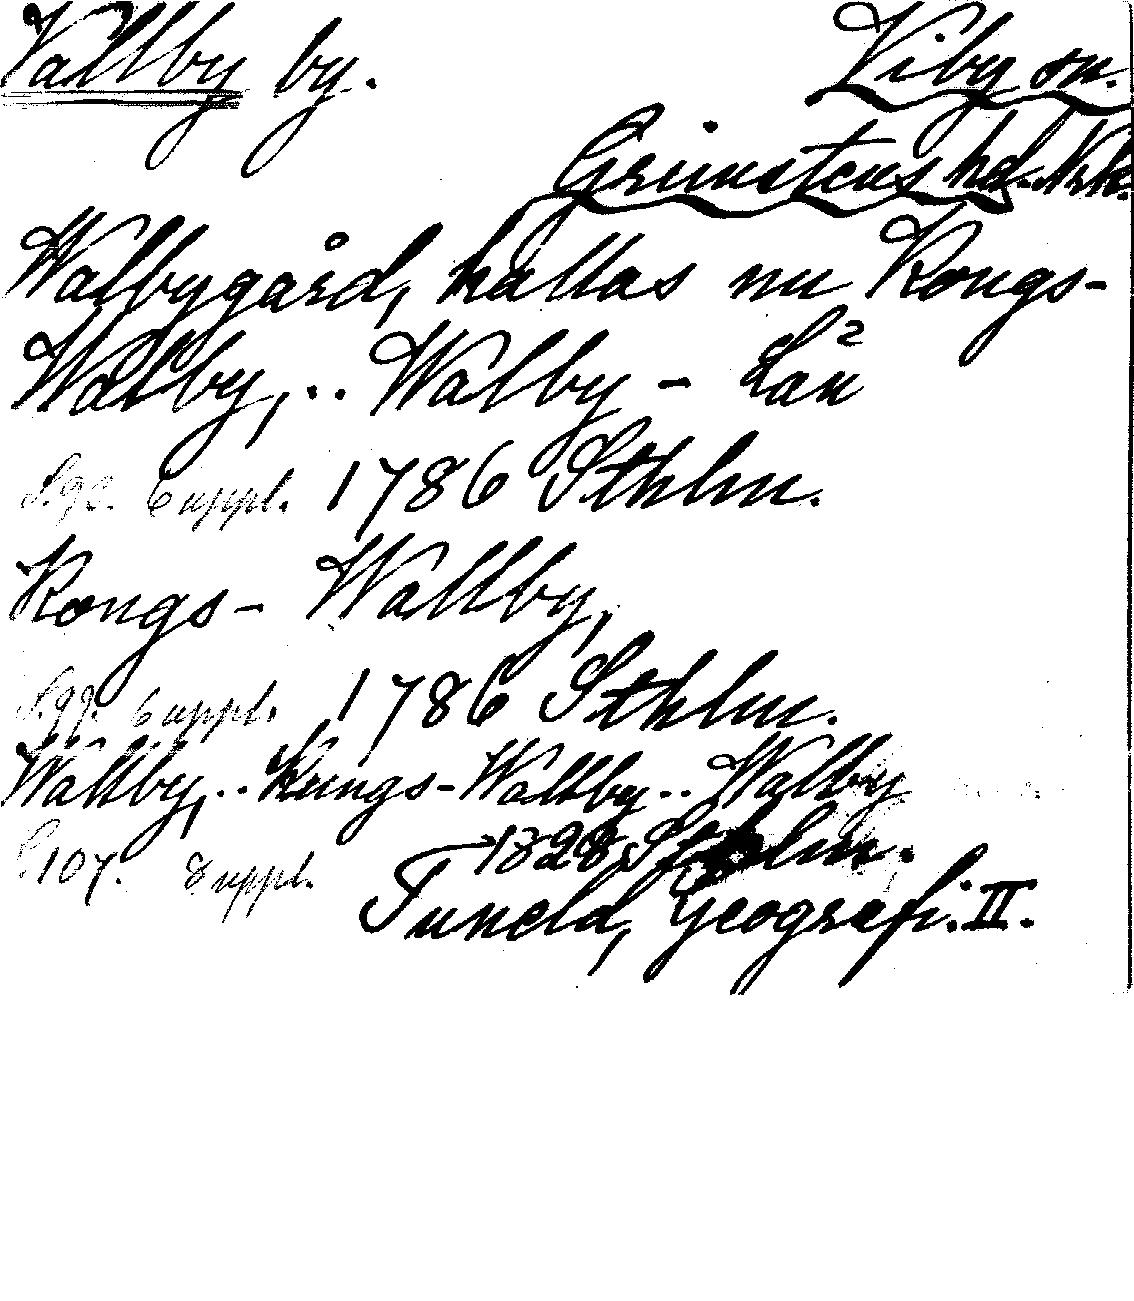 Vallby by. Viby sn.
Grimstens hd. Nrk.
Walbygård, kallas nu Kongs-
Walby, .. Walby - Lån
S. 92. 6 uppl. 1786 Sthlm.
Kongs- Wallby,
S. 99. 6 uppl. 1786 Sthlm.
Wallby, .. Kungs-Wallby .. Walby
1828 Sthlm.
S. 107. 8 uppl.
Tuneld, Geografi. II.